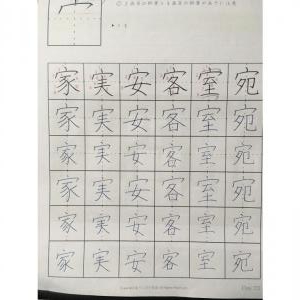 宀
家実安客室宛
家実安客室宛
家実安客室宛
家実安客室宛
家実安客室宛
家実安客室宛